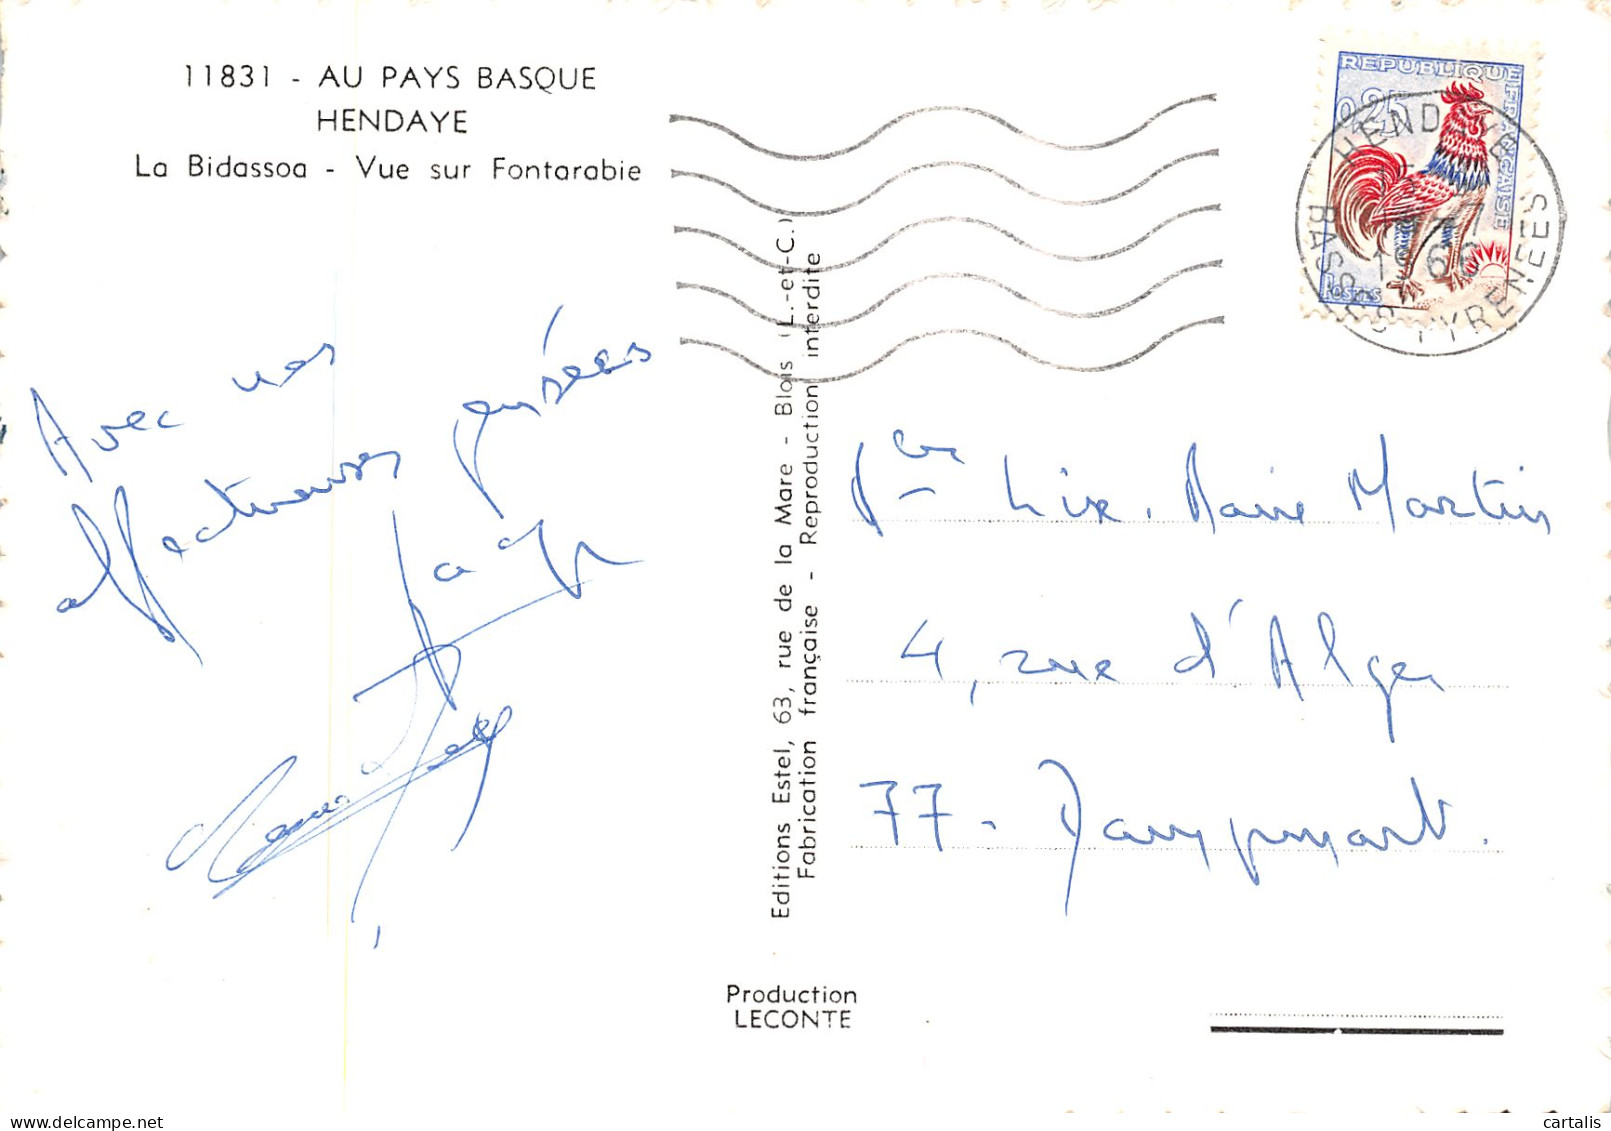 11831 - AU PAYS BASQUE
HENDAYE
La Bidassoa - Vue sur Fontarabie
REPUBLIQUE FRANÇAISE
0,25
POSTES
HENDAYE
1966
BASSES PYRENEES
Avec nos
affectueuses pensées
Editions Estel, 63, rue de la Mare - Blois (L.-et-C.)
Fabrication française - Reproduction interdite
Marie Martin
4, rue d'Alger
77 - Dampmart.
Production
LECONTE
cartalis